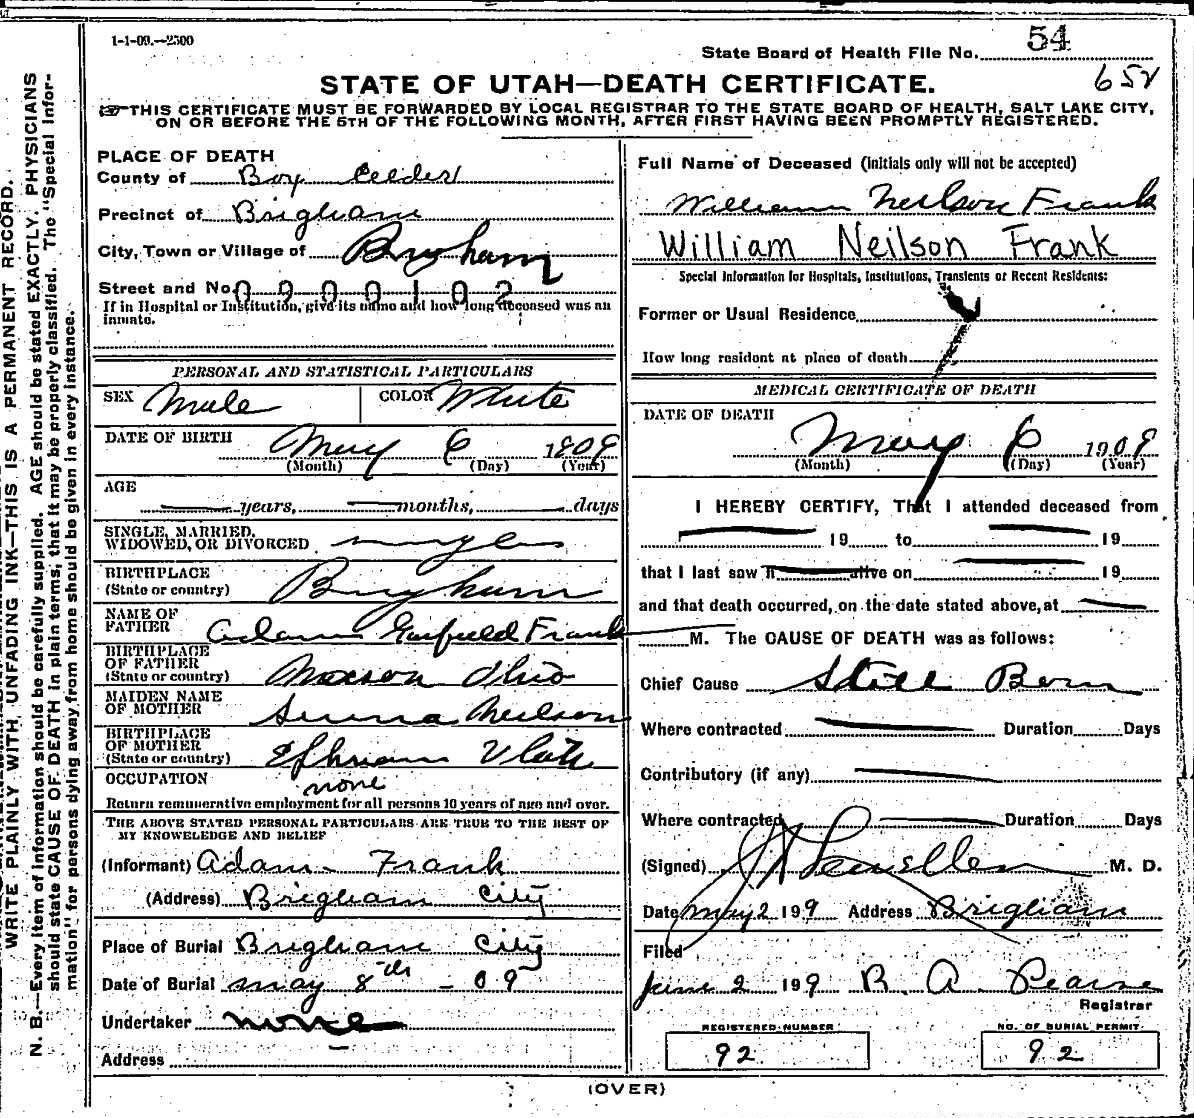 1-1-09.—2500
State Board of Health File No. 54
STATE OF UTAH—DEATH CERTIFICATE.
652
THIS CERTIFICATE MUST BE FORWARDED BY LOCAL REGISTRAR TO THE STATE BOARD OF HEALTH, SALT LAKE CITY,
ON OR BEFORE THE 5TH OF THE FOLLOWING MONTH, AFTER FIRST HAVING BEEN PROMPTLY REGISTERED.
WRITE PLAINLY WITH UNFADING INK—THIS IS A PERMANENT RECORD.
N. B.—Every item of information should be carefully supplied. AGE should be stated EXACTLY. PHYSICIANS
should state CAUSE OF DEATH in plain terms, that it may be properly classified. The "Special Infor-
mation" for persons dying away from home should be given in every instance.
PLACE OF DEATH
County of Box Elder
Precinct of Brigham
City, Town or Village of Brigham
Street and No. 0900102
If in Hospital or Institution, give its name and how long deceased was an
inmate.
PERSONAL AND STATISTICAL PARTICULARS
SEX Male COLOR White
DATE OF BIRTH May 6 1909
(Month) (Day) (Year)
AGE
years, months, days
SINGLE, MARRIED,
WIDOWED, OR DIVORCED
BIRTHPLACE
(State or country) Brigham
NAME OF
FATHER Adam Garfield Frank
BIRTHPLACE
OF FATHER
(State or country) Ohio
MAIDEN NAME
OF MOTHER Neilson
BIRTHPLACE
OF MOTHER
(State or country) Ephriam Utah
OCCUPATION none
Return remunerative employment for all persons 10 years of age and over.
THE ABOVE STATED PERSONAL PARTICULARS ARE TRUE TO THE BEST OF
MY KNOWLEDGE AND BELIEF
(Informant) Adam Frank
(Address) Brigham City
Place of Burial Brigham City
Date of Burial May 8th - 09
Undertaker none
Address
Full Name of Deceased (initials only will not be accepted)
William Neilson Frank
William Neilson Frank
Special Information for Hospitals, Institutions, Transients or Recent Residents:
Former or Usual Residence
How long resident at place of death
MEDICAL CERTIFICATE OF DEATH
DATE OF DEATH
May 6 1909
(Month) (Day) (Year)
I HEREBY CERTIFY, That I attended deceased from
19 to 19
that I last saw h alive on 19
and that death occurred, on the date stated above, at
M. The CAUSE OF DEATH was as follows:
Chief Cause Still Born
Where contracted Duration Days
Contributory (if any)
Where contracted Duration Days
(Signed) M. D.
Date May 2 199 Address Brigham
Filed
June 2 199 B. A. Pearse
Registrar
REGISTERED NUMBER
92
NO. OF BURIAL PERMIT
92
(OVER)